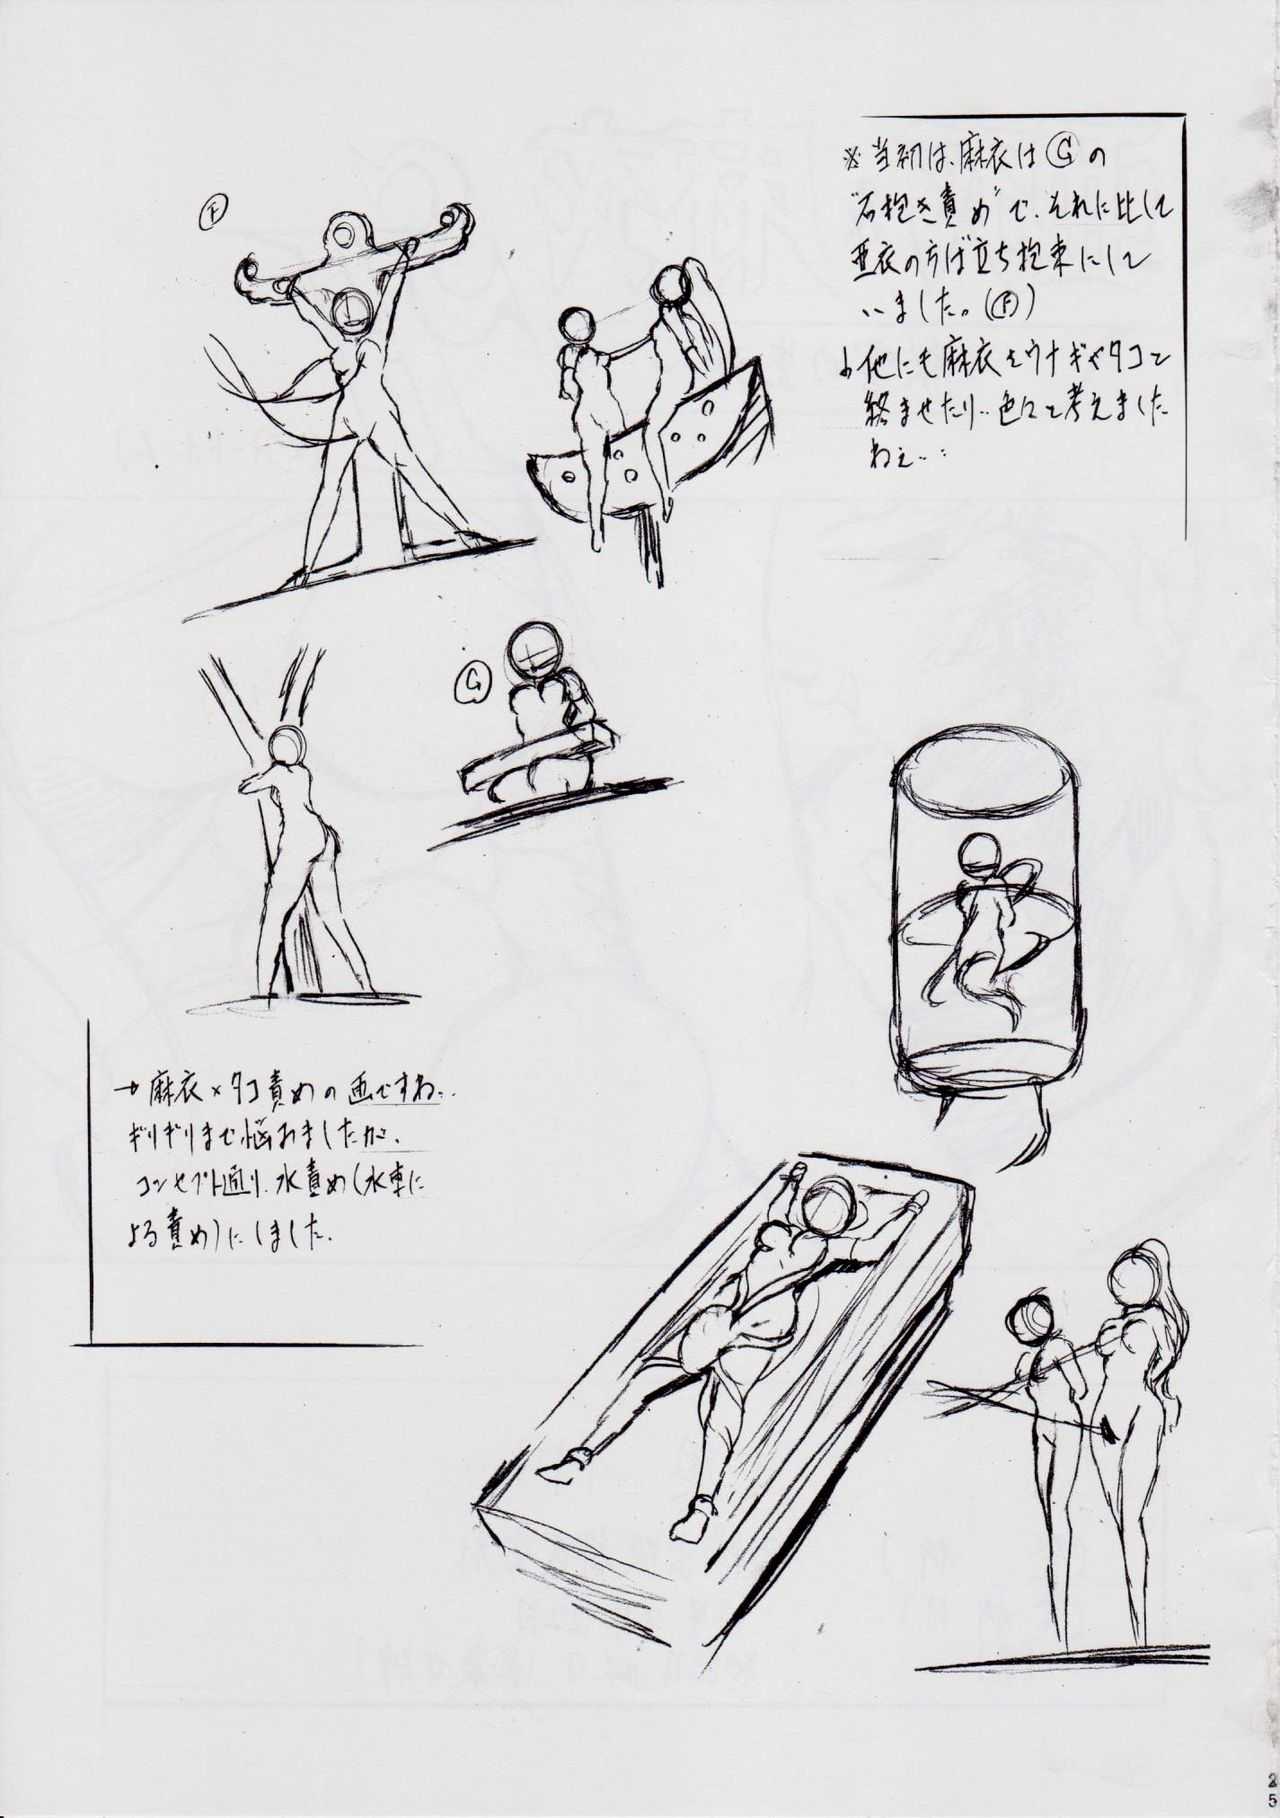 ※当初は、麻衣はⒼの
"石抱き責め"で、それに比して
亜衣の方は"立ち拘束にして
いました。(Ⓕ)
↓他にも麻衣をウナギやタコと
絡ませたり‥色々と考えました
ねぇ‥:
Ⓕ
Ⓖ
→麻衣×タコ責めの画ですね‥
ギリギリまで悩みましたが、
コンセプト通り、水責め(水車に
よる責め)にしました.
25